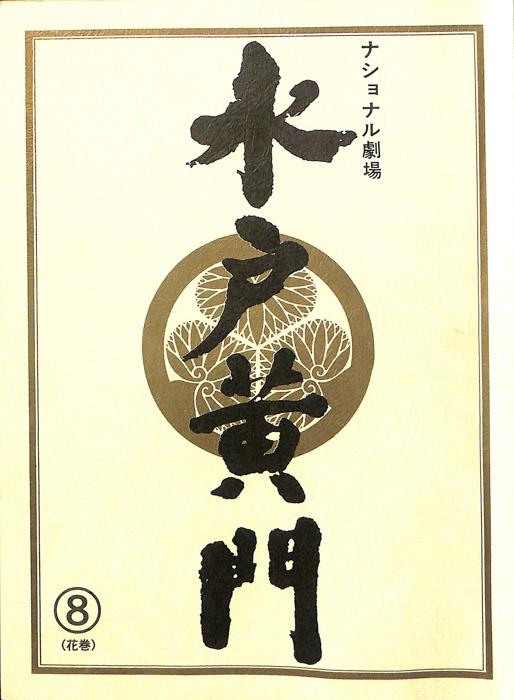 ナショナル劇場
水戸黄門
⑧
(花巻)